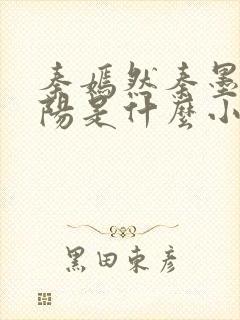 秦嫣然秦墨
陽是什麼小
黑田東彥